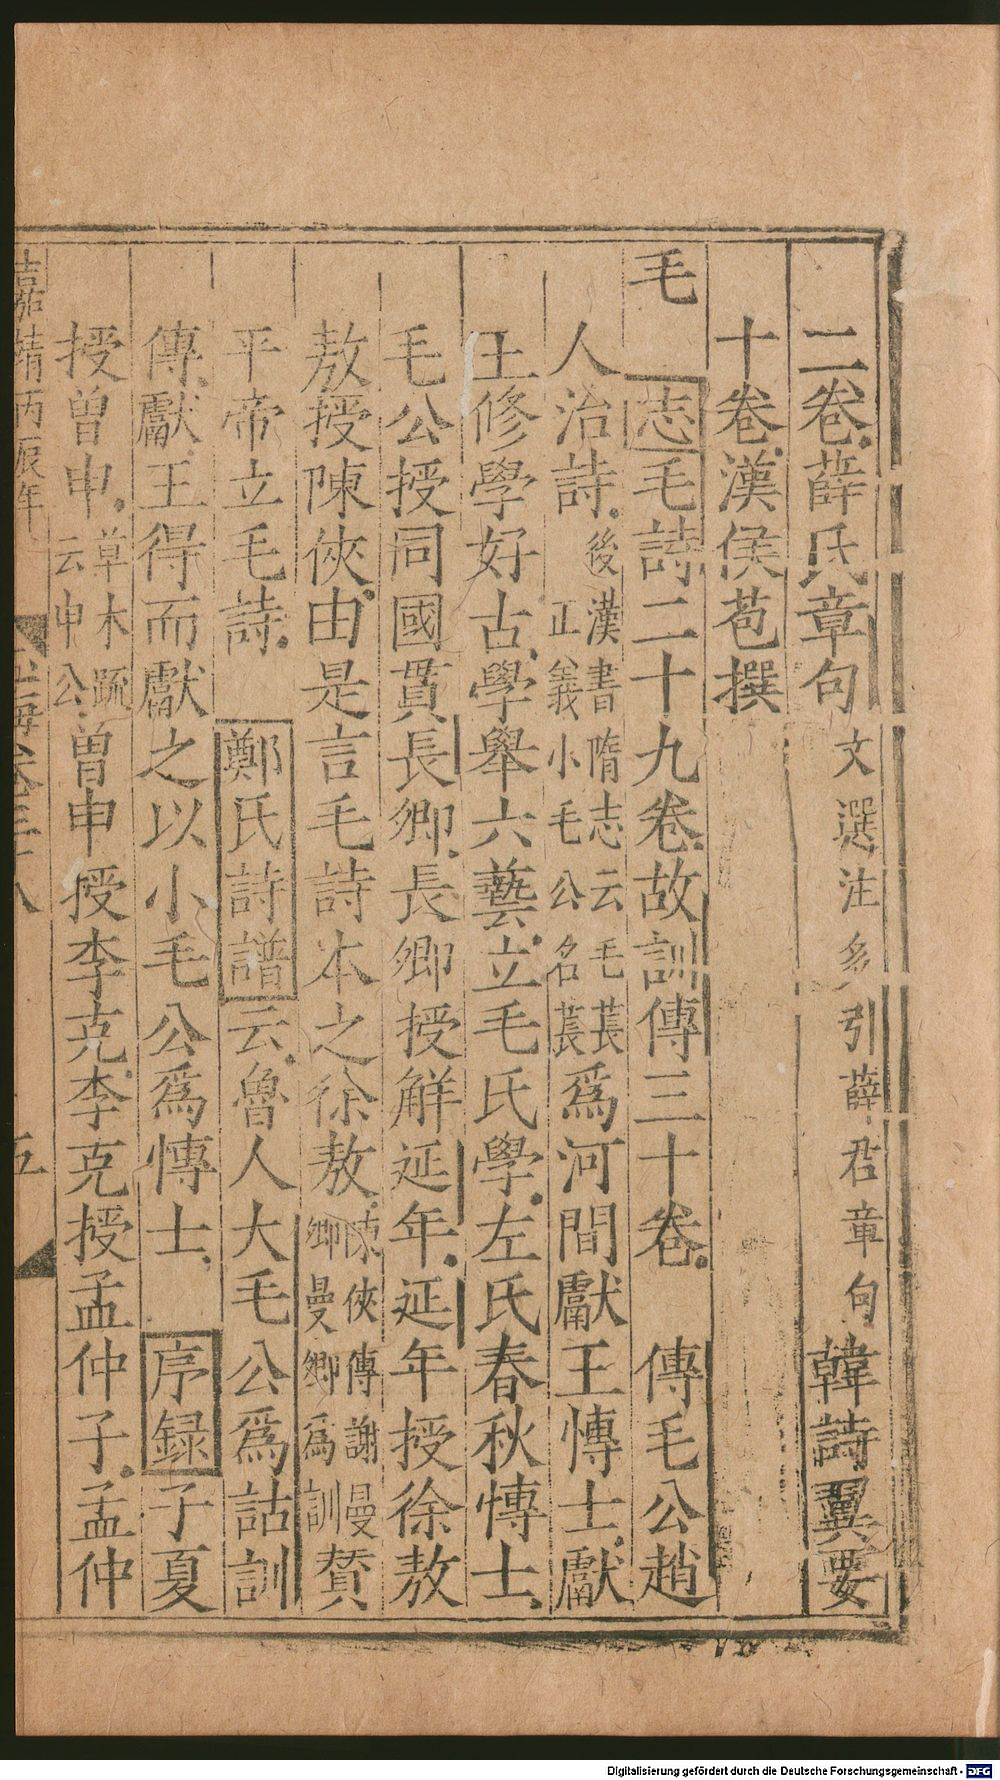 二卷薛氏章句文選注多引薛君章句韓詩翼要
十卷漢侯苞撰
毛
志毛詩二十九卷故訓傳三十卷 傳毛公趙
人治詩後漢書隋志云毛萇正義小毛公名萇爲河間獻王愽士獻
王修學好古學舉六藝立毛氏學左氏春秋愽士
毛公授同國貫長卿長卿授解延年延年授徐敖
敖授陳俠由是言毛詩本之徐敖陳俠傳謝曼卿曼卿爲訓贊
平帝立毛詩 鄭氏詩譜云魯人大毛公爲詁訓
傳獻王得而獻之以小毛公爲愽士 序録子夏
授曾申草木疏云申公曾申授李克李克授孟仲子孟仲
嘉靖丙辰年
五
Digitalisierung gefördert durch die Deutsche Forschungsgemeinschaft - DFG